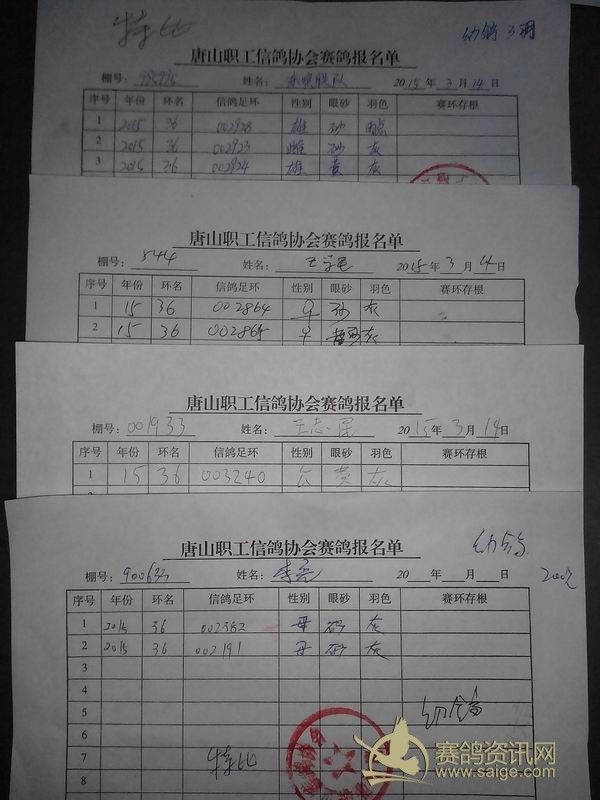 特比
幼鸽 3羽
唐山职工信鸽协会赛鸽报名单
棚号： 姓名： 2015年3月14日
序号 年份 环名 信鸽足环 性别 眼砂 羽色 赛环存根
1 2015 36 002928 雄 砂 雨点
2 2015 36 002923 雌 砂 灰
3 2015 36 002924 雄 黄 灰
唐山职工信鸽协会赛鸽报名单
棚号：544 姓名：王 2015年3月4日
序号 年份 环名 信鸽足环 性别 眼砂 羽色 赛环存根
1 15 36 002864 早 砂 灰
2 15 36 002865 早 灰
唐山职工信鸽协会赛鸽报名单
棚号：001933 姓名：王志 2015年3月14日
序号 年份 环名 信鸽足环 性别 眼砂 羽色 赛环存根
1 15 36 003240 公 黄 灰
幼鸽
唐山职工信鸽协会赛鸽报名单
棚号：900633 姓名：李亮 20 年 月 日
序号 年份 环名 信鸽足环 性别 眼砂 羽色 赛环存根
1 2015 36 002362 母 砂 灰
2 2015 36 002191 母 砂 灰
3
4
5 幼鸽
6
7 特比
8
赛鸽资讯网
www.saige.com